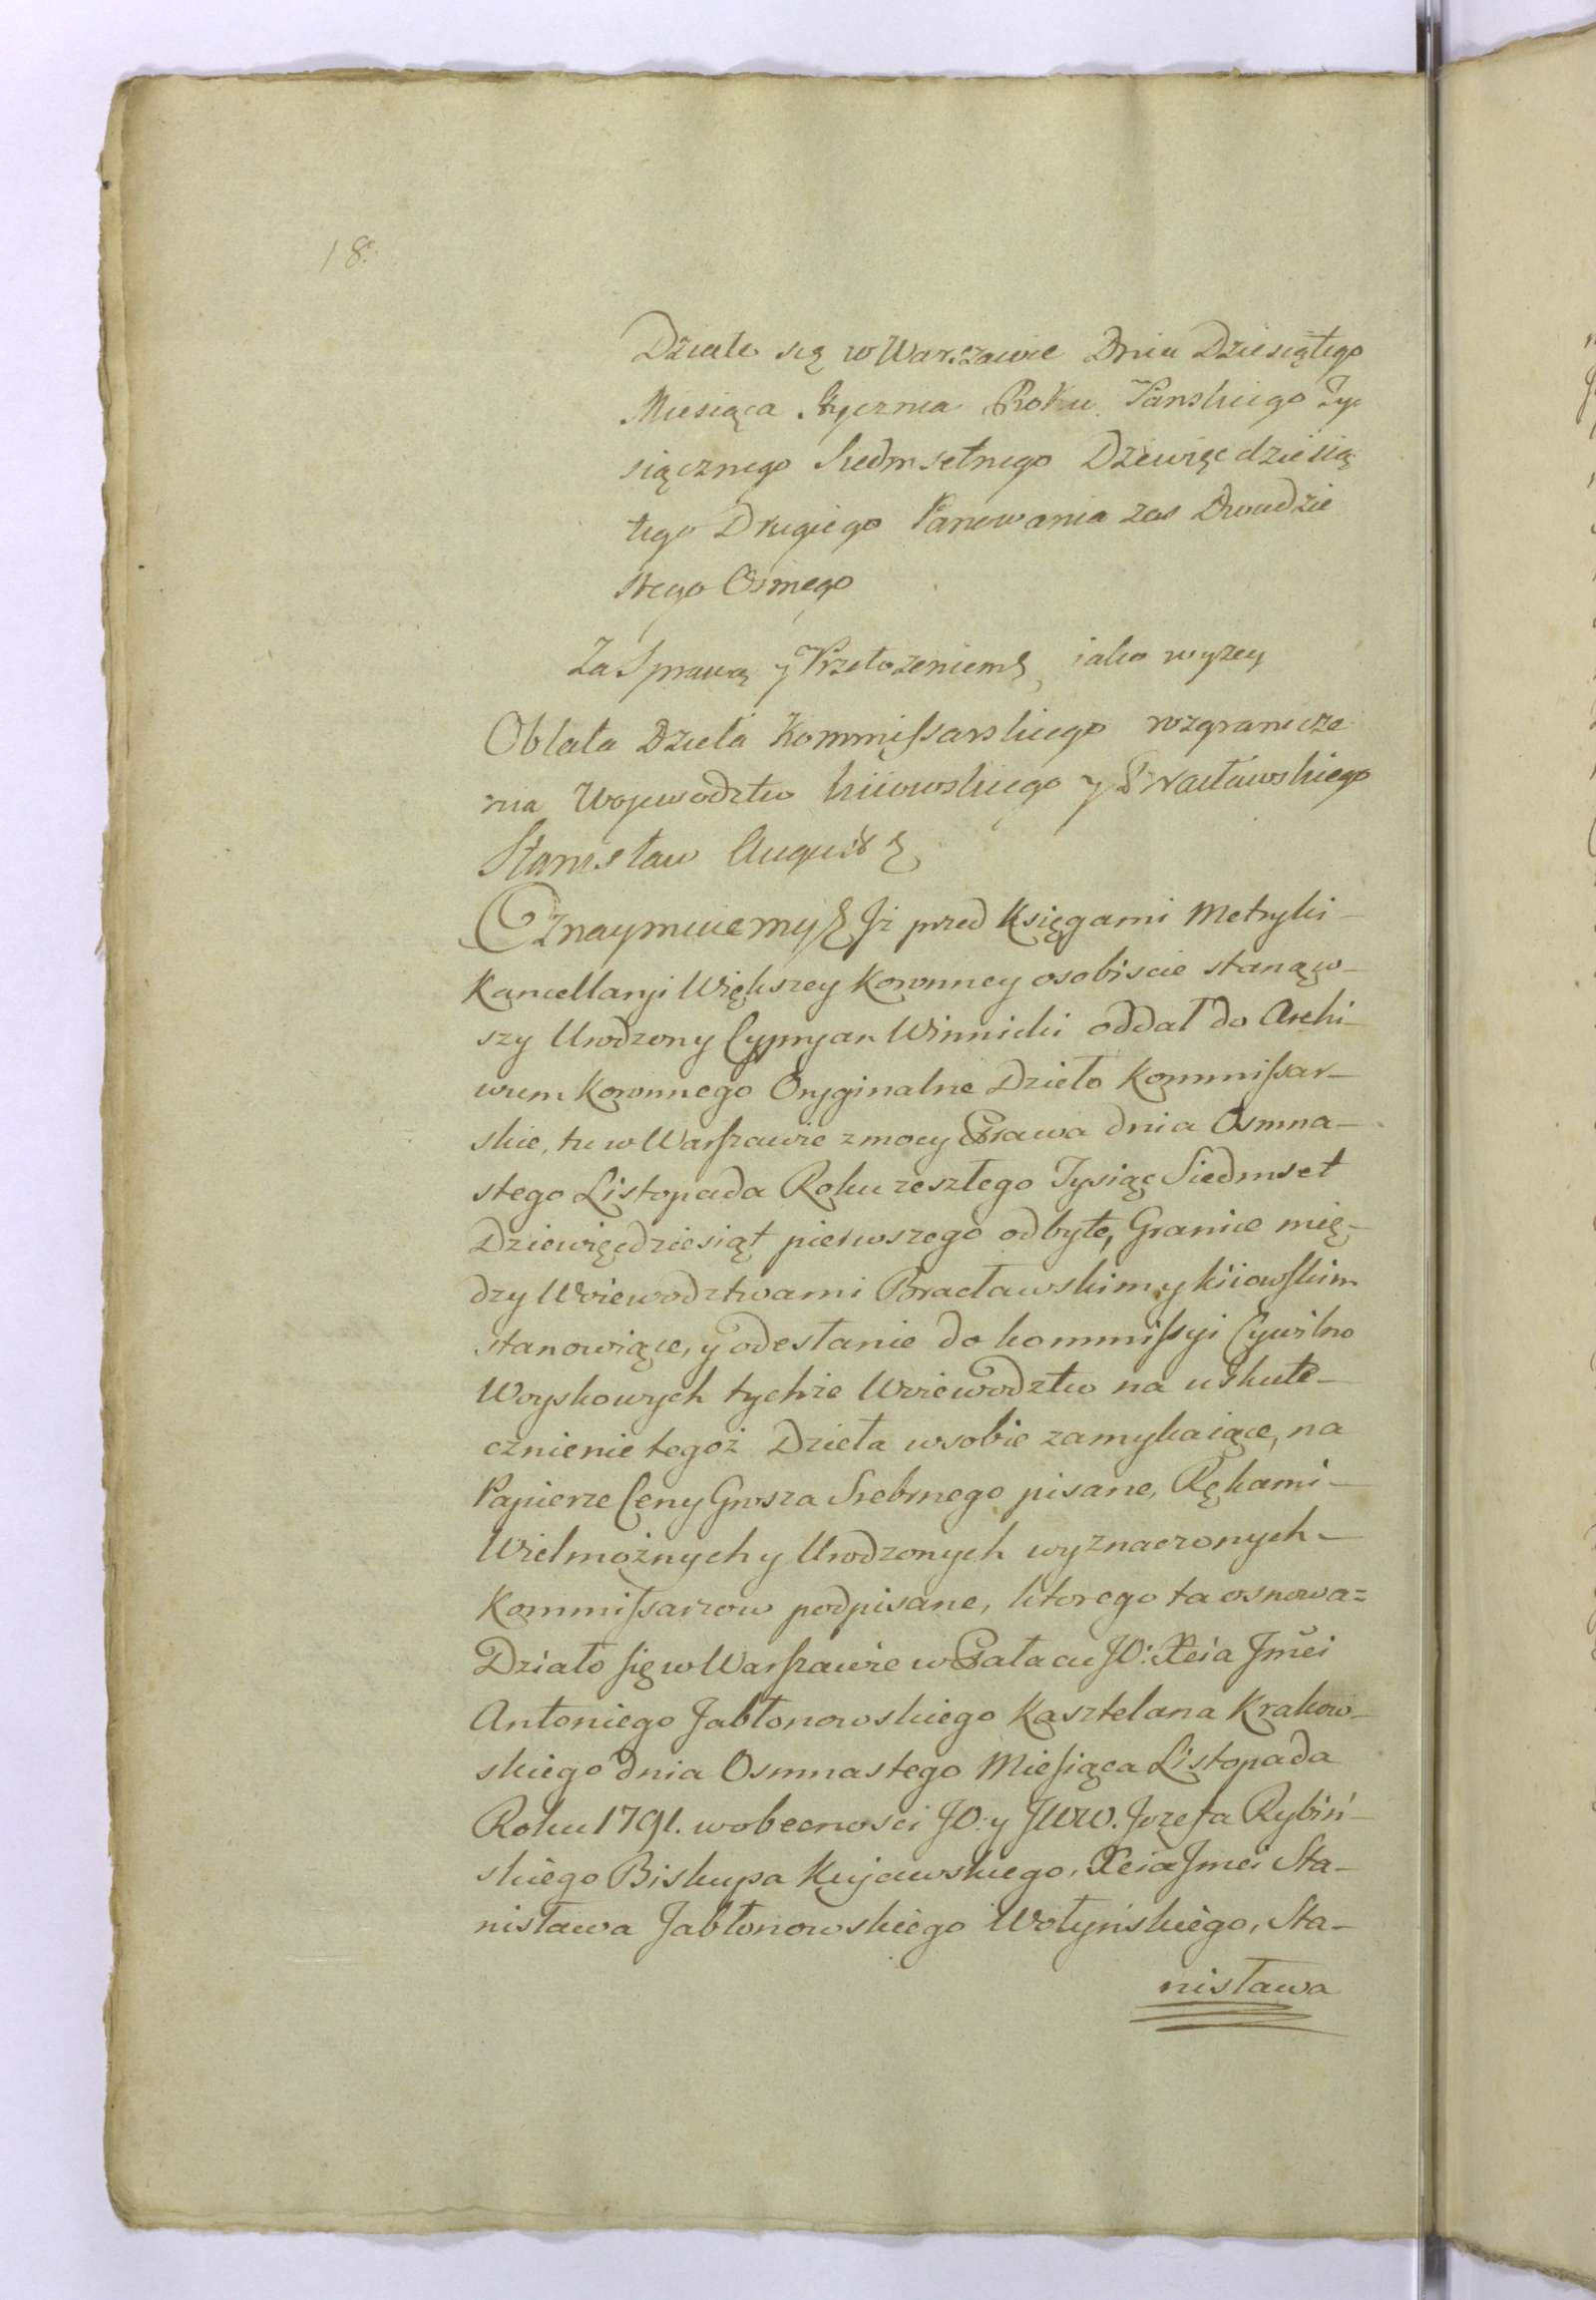 18.
Działo się w Warszawie Dnia Dziesiątego
Miesiąca Stycznia Roku Panskiego Ty
siącznego Siedmsetnego Dziewięcdziesią
tego Drugiego Panowania zas Dwudzie
stego Osmego
Za Sprawą y Przełożeniem& jako wyzey
Oblata Dzieła Kommißarskiego rozgranicze
nia Wojewodztw kiiowskiego y Bracławskiego
Stanisław August &
Oznaymuiemy& Jż przed Księgami Metryki-
Kancellaryi Większey Koronney osobiscie stanąw-
szy Urodzony Cypryan Winnicki oddał do Archi-
wum Koronnego Oryginalne Dzieło Kommißar-
skie, tu w Warszawie z mocy Prawa dnia Osmna-
stego Listopada Roku zeszłego Tysiąc Siedmset
Dziewięcdziesiąt pierwszego odbyte, Granice mię-
dzy Woiewodztwami Bracławskim y kiiowskim
stanowiące, y odesłanie do kommißyi Cywilno
Woyskowych tychże Woiewodztw na uskute-
cznienie tegoż Dzieła w sobie zamykaiące, na
Papierze Ceny Grosza Srebrnego pisane, Rękami-
Wielmożnych y Urodzonych wyznaczonych-
Kommißarzow podpisane, ktorego ta osnowa=
Działo się w Warszawie w Pałacu JO: Xcia Jmci
Antoniego Jabłonowskiego Kasztelana Krakow-
skiego dnia Osmnastego Miesiąca Listopada
Roku 1791. w obecnosci JO: y JWW. Jozefa Rybiń-
skiego Biskupa Kujawskiego, Xcia Jmci Sta-
nisława Jabłonowskiego Wołyńskiego, Sta-
nisława